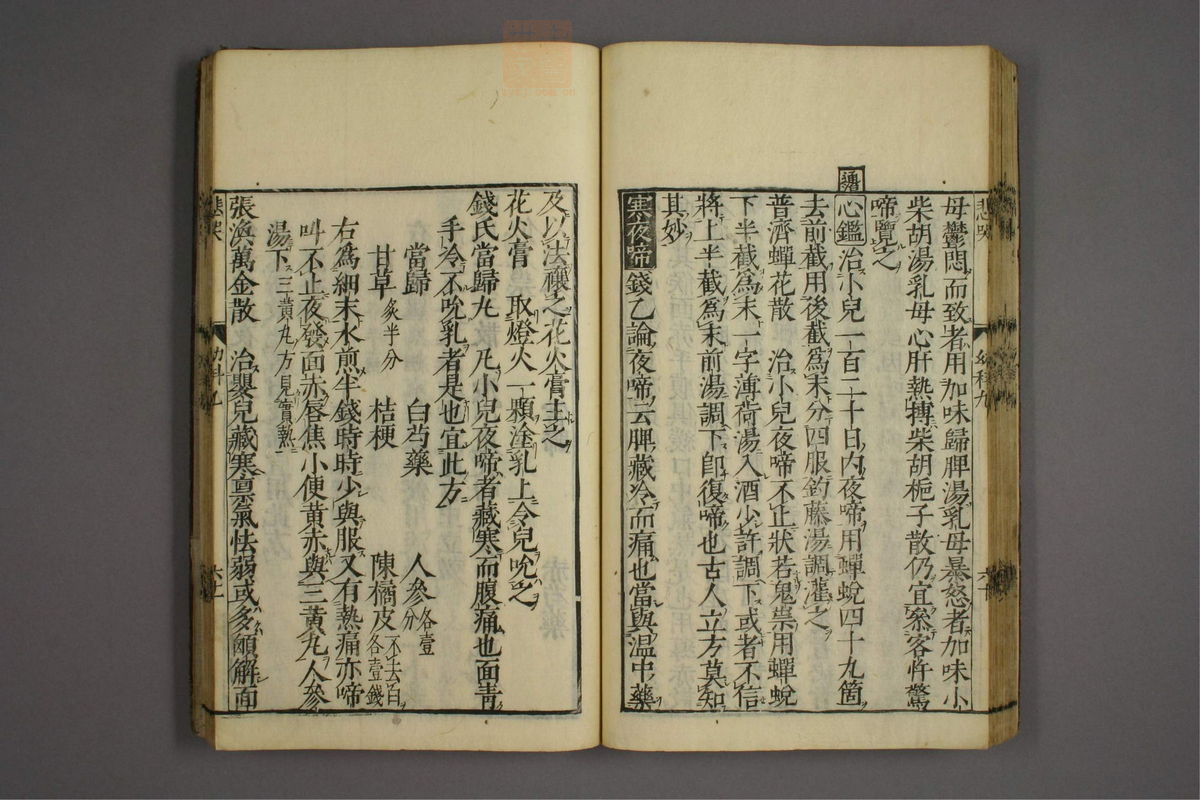 悲哭
幼科九
六十
母鬱悶而致者用加味歸脾湯乳母暴怒者加味小
柴胡湯乳母心肝熱搏柴胡梔子散仍宜察客忤驚
啼覽之
心鑑治小兒一百二十日內夜啼用蟬蛻四十九箇
去前截用後截爲末分四服釣藤湯調灌之
普濟蟬花散 治小兒夜啼不止狀若鬼祟用蟬蛻
下半截爲末一字薄荷湯入酒少許調下或者不信
將上半截爲末前湯調下卽復啼也古人立方莫知
其妙
寒夜啼錢乙論夜啼云脾藏冷而痛也當與温中藥
及以法禳之花火膏主之
花火膏 取燈火一顆塗乳上令兒吮之
錢氏當歸丸 凡小兒夜啼者藏寒而腹痛也面青
手冷不吮乳者是也宜此方
當歸 白芍藥 人參各壹分
甘草炙半分 桔梗 陳橘皮不去白各壹錢
右爲細末水煎半錢時時少與服又有熱痛亦啼
叫不止夜發面赤唇焦小便黄赤與三黄丸人參
湯下三黄丸方見實熱
張渙萬金散 治嬰兒藏寒禀氣怯弱或多顱解面
悲哭
六十一